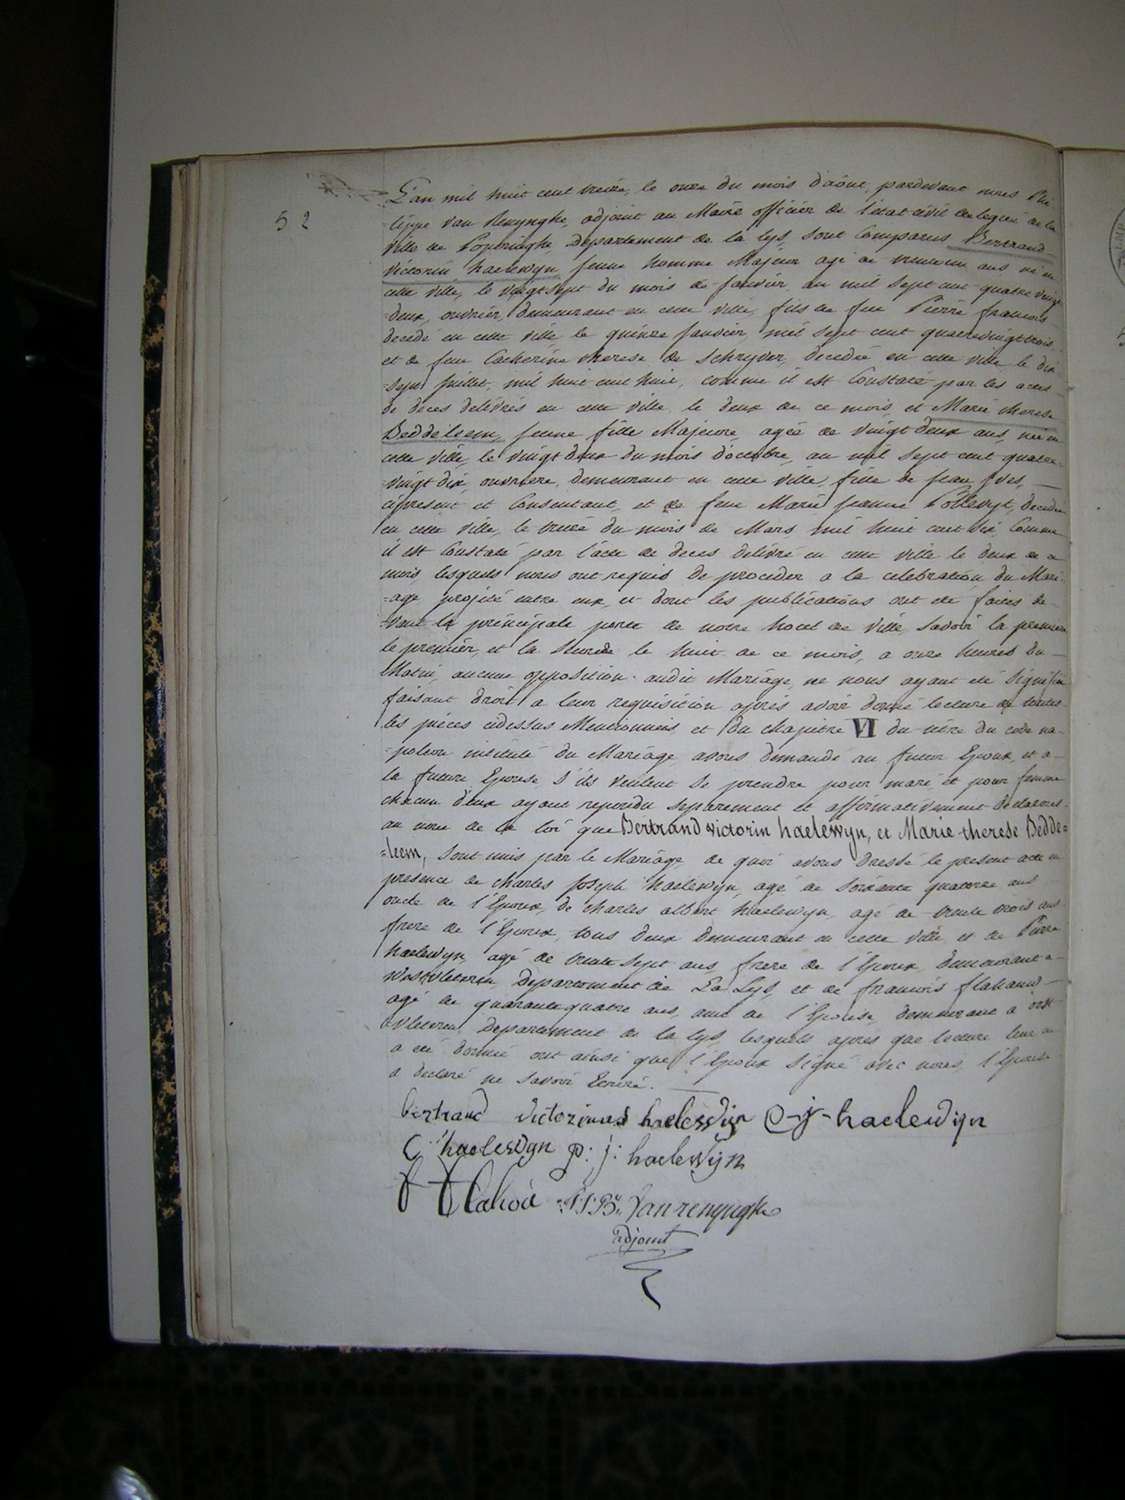 52
L'an mil huit cent treize, le onze du mois d'août, pardevant nous Phi-
-lippe van Renynghe, adjoint au Maire officier de l'état civil delegué de la
ville de Poperinghe, Departement de la Lys, sont Comparus Bertrand
victorin haelewyn, jeune homme Majeur agé de trente un ans né en
cette ville, le vingt sept du mois de janvier, an mil sept cent quatre vingt
deux, ouvrier, demeurant en cette ville, fils de feu Pierre francois
decedé en cette ville le quinze janvier, mil sept cent quatrevingt trois
et de feue Catherine therese de Schryver, decedée en cette ville le dix
sept juillet, mil huit cent huit, comme il est Constaté par les actes
de deces delivrés en cette ville le deux de ce mois, et Marie therese
Beddeleem, jeune fille Majeure agée de vingt deux ans, née en
cette ville, le vingt deux du mois d'octobre, an mil sept cent quatre-
vingt dix ouvriere, demeurant en cette ville, fille de jean yves,
cipresent et Consentant, et de feue Marie jeanne decedée
en cette ville, le treize du mois de Mars, mil huit cent dix, Comme
il est Constaté par l'acte de deces delivré en cette ville le deux de ce
mois, lesquels nous ont requis de proceder a la celebration du Mari-
-age projeté entre eux, et dont les publications ont été faites de-
-vant la principale porte de notre hotel de Ville, savoir la premiere
le premier, et la seconde le huit de ce mois, a onze heures du
Matin, aucune opposition audit Mariage, ne nous ayant été signifiée
faisant droit a leur requisition après avoir donné lecture de toutes
les pieces cidessus Mentionnées et du chapitre VI du titre du code na-
-poleon intitulé du Mariage avons demandé au futur Epoux, et a
la future Epouse, s'ils veulent se prendre pour mari et pour femme
chacun d'eux ayant repondu separement et affirmativement declarons
au nom de la loi que Bertrand victorin haelewyn, et Marie therese Bedde-
-leem, sont unis par le Mariage, de quoi avons dressé le present acte en
presence de charles joseph haelewyn, agé de soixante quatorze ans
oncle de l'Epoux, de charles albert haelewyn, agé de trente trois ans
frere de l'Epoux, tous deux demeurant en cette ville, et de Pierre
haelewyn, agé de trente sept ans, frere de l'Epoux, demeurant a
westvleteren Departement de La Lys, et de francois flahaud
agé de quarante quatre ans, ami de l'Epouse, demeurant a oost
vleteren, Departement de la lys, lesquels après que lecture leur en
a été donnée ont ainsi que l'Epoux signé avec nous, l'Epouse
a declaré ne savoir Ecrire.
bertrand victorinus haelewyn C-j-haelewyn
C haelewyn p: j: haelewyn
f flahoù Vanrenynghe
adjoint